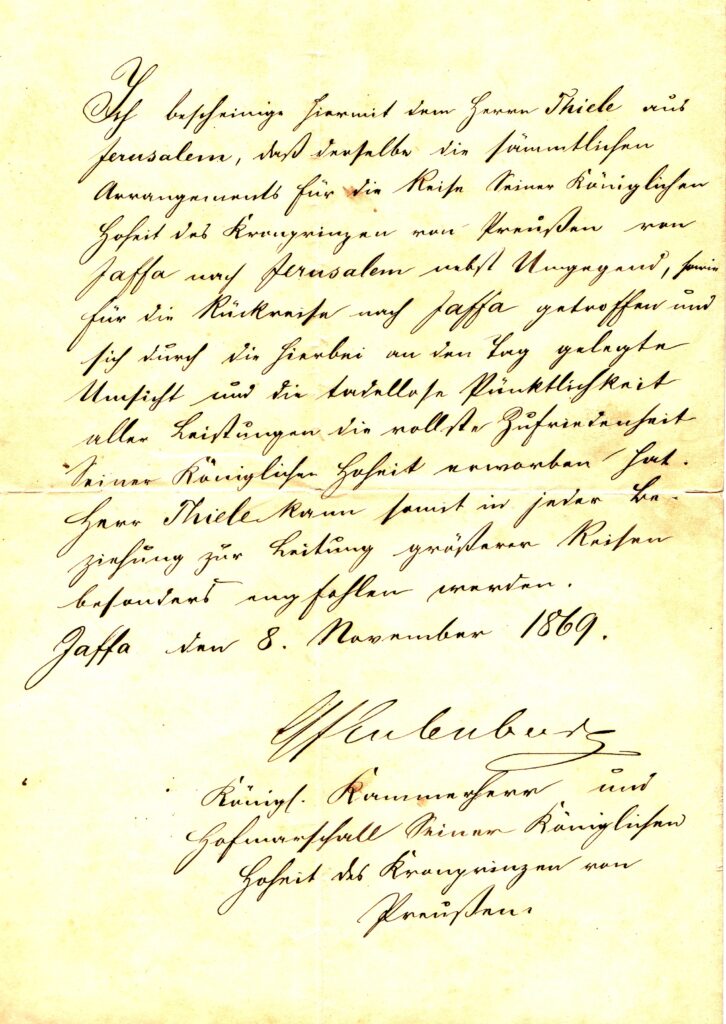 Ich bescheinige hiermit dem Herrn Thiele aus
Jerusalem, daß derselbe die sämmtlichen
Arrangements für die Reise Seiner Königlichen
Hoheit des Kronprinzen von Preußen von
Jaffa nach Jerusalem nebst Umgegend, sowie
für die Rückreise nach Jaffa getroffen und
sich durch die hierbei an den Tag gelegte
Umsicht und die tadellose Pünktlichkeit
aller Leistungen die vollste Zufriedenheit
Seiner Königlichen Hoheit erworben hat.
Herr Thiele kann somit in jeder Be-
ziehung zur Leitung größerer Reisen
besonders empfohlen werden.
Jaffa den 8. November 1869.
Eulenburg
Königl. Kammerherr und
Hofmarschall Seiner Königlichen
Hoheit des Kronprinzen von
Preußen.